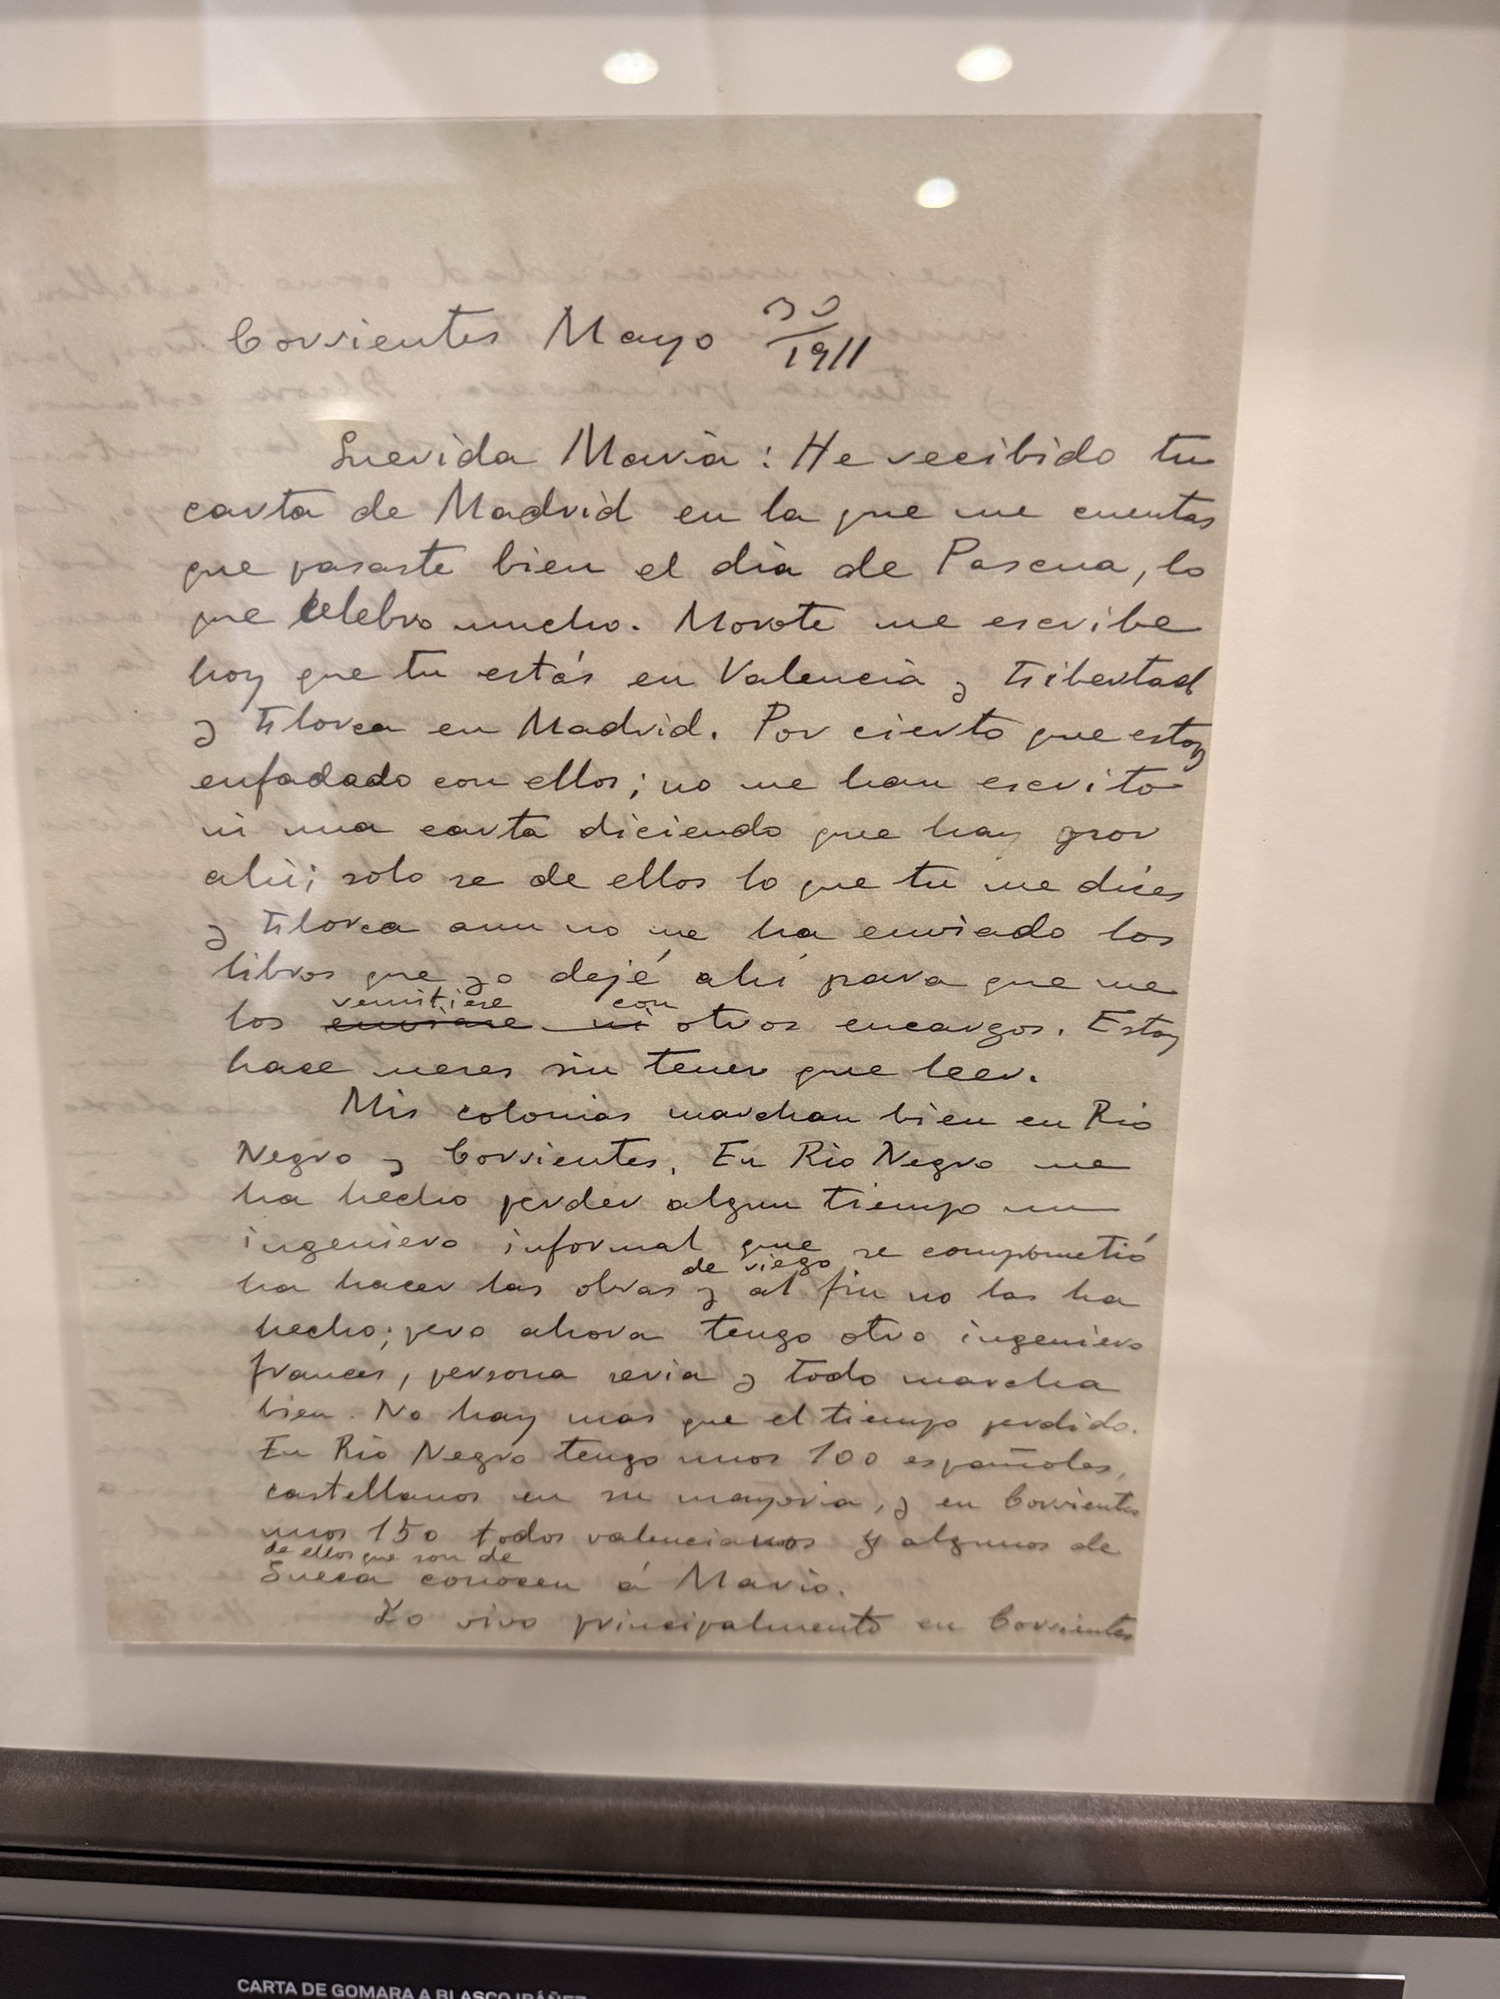 Corrientes Mayo 30/1911
Querida Maria: He recibido tu
carta de Madrid en la que me cuentas
que pasaste bien el dia de Pascua, lo
que celebro mucho. Morote me escribe
hoy que tu estás en Valencia y Libertad
y Llorca en Madrid. Por cierto que estoy
enfadado con ellos; no me han escrito
ni una carta diciendo que hay por
ahi; solo se de ellos lo que tu me dices
y Llorca aun no me ha enviado los
libros que yo dejé ahi para que me
los remitiese con otros encargos. Estoy
hace meses sin tener que leer.
Mis colonias marchan bien en Rio
Negro y Corrientes. En Rio Negro me
ha hecho perder algun tiempo un
ingeniero informal que se comprometió
ha hacer las obras de riego y al fin no las ha
hecho; pero ahora tengo otro ingeniero
frances, persona seria y todo marcha
bien. No hay mas que el tiempo perdido.
En Rio Negro tengo unos 100 españoles,
castellanos en su mayoria, y en Corrientes
unos 150 todos valencianos y algunos de
de ellos que son de
Sueca conocen á Mario.
Yo vivo principalmente en Corrientes
CARTA DE GOMARA A BLASCO IBÁÑEZ